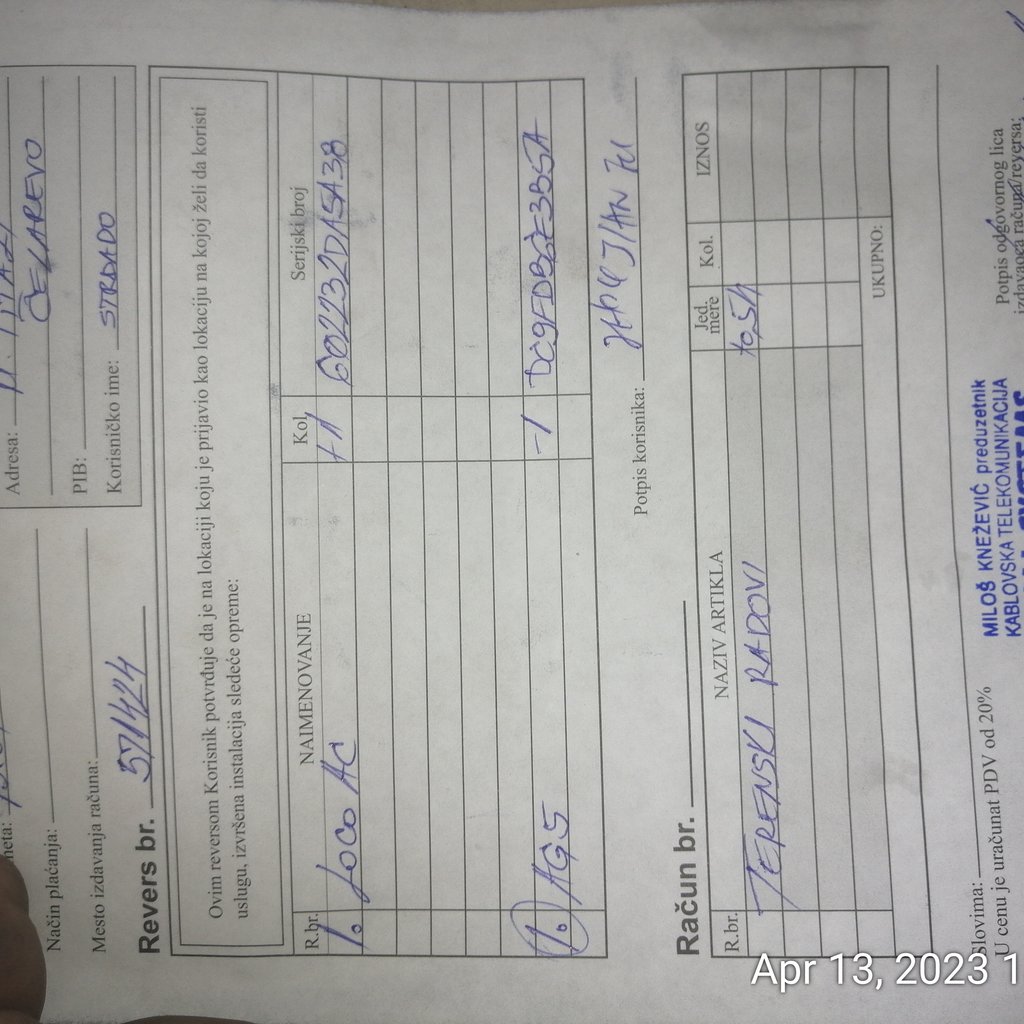 Adresa:
ČELAREVO
PIB:
Korisničko ime: STRADADO
Način plaćanja:
Mesto izdavanja računa:
Revers br. 571424
Ovim reversom Korisnik potvrđuje da je na lokaciji koju je prijavio kao lokaciju na kojoj želi da koristi
uslugu, izvršena instalacija sledeće opreme:
R.br. NAIMENOVANJE Kol. Serijski broj
1. LOCO AC +1 602232DA5A38
1. AG5 -1 DC9FDB2E3B5A
Potpis korisnika:
Račun br.
R.br. NAZIV ARTIKLA Jed. mere Kol. IZNOS
TERENSKI RADOVI
UKUPNO:
Slovima:
U cenu je uračunat PDV od 20%
MILOŠ KNEŽEVIĆ preduzetnik
KABLOVSKA TELEKOMUNIKACIJA
Potpis odgovornog lica
izdavaoca računa/reversa:
Apr 13, 2023 1